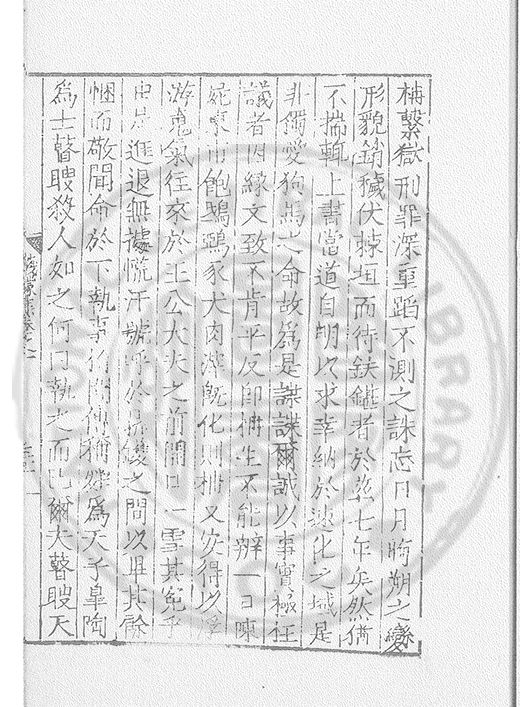 柟繫獄刑罪深重蹈不測之誅忘日月晦朔之變
形貌銷穢伏棘垣而待鈇鑕者於茲七年矣然猶
不揣輒上書當道自明以求幸納於速化之域是
非獨愛狗馬之命故為是諜諜爾誠以事實極枉
議者因緣文致不肯平反即柟生不能辯一日陳
屍東市飽鴟鴞豕犬肉潰既化則柟又安得以浮
游鬼氣往來於王公大夫之前開口一雪其冤乎
逛退無據慌汗號呼於 之間以畢其餘
悃而敬聞命於下執事 傳稱舜為天子皋陶
為士瞽瞍殺人如之何曰執之而已爾夫瞽瞍天